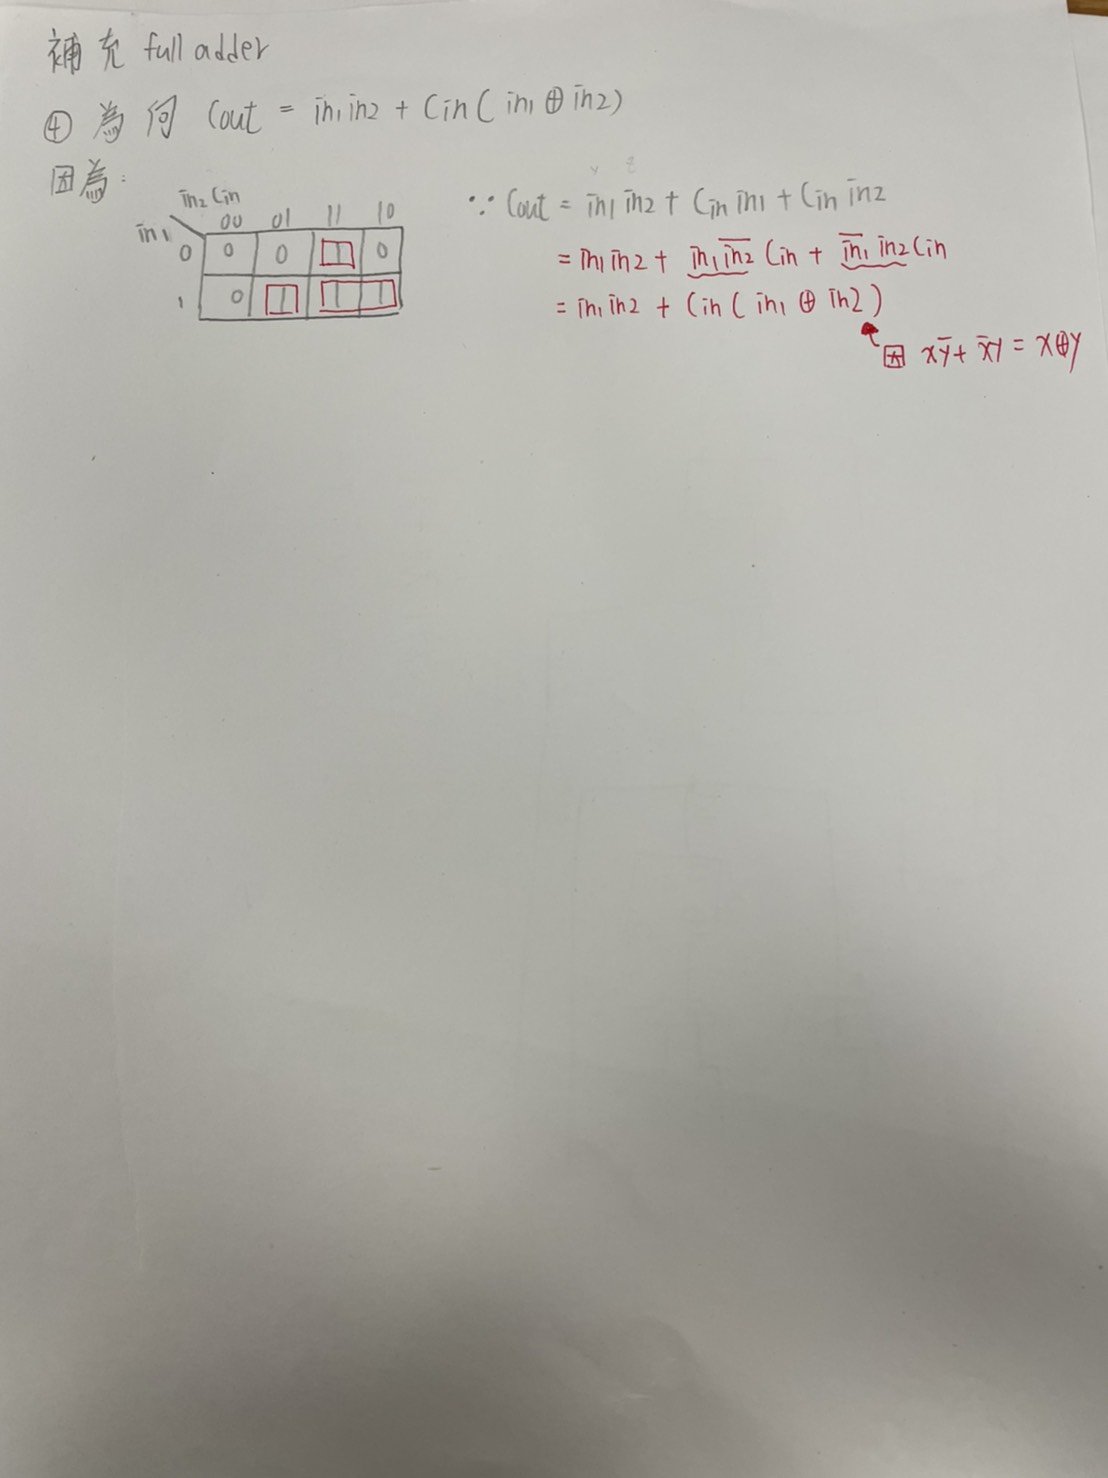 補充 full adder
④ 為何 Cout = in1 in2 + Cin ( in1 ⊕ in2 )
因為:
in2 Cin
in1
00 01 11 10
0 0 0 1 0
1 0 1 1 1
y z
∵ Cout = in1 in2 + Cin in1 + Cin in2
= in1 in2 + in1 i̅n̅2̅ Cin + i̅n̅1̅ in2 Cin
= in1 in2 + Cin ( in1 ⊕ in2 )
因 xy̅ + x̅y = x⊕y